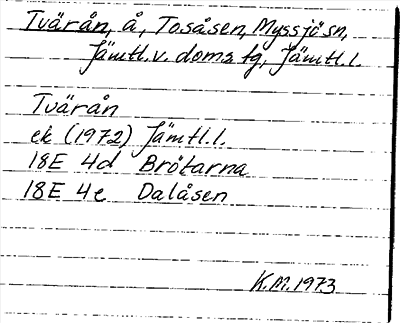 Tvärån, å, Tosåsen, Myssjö sn,
Jämtl. v. doms tg, Jämtl. l.
Tvärån
ek (1972) Jämtl. l.
18E 4d Brötarna
18E 4e Dalåsen
K.M. 1973